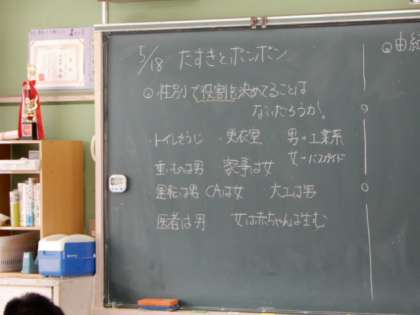 5/18 たすきとボンボン
◎性別で役割を決めてることは
ないだろうか。
・トイレそうじ 更衣室 男→工業系
女→バスガイド
重いものは男 家事は女
運転は男 CAは女 大工は男
医者は男 女は赤ちゃんは生む
◎由紀